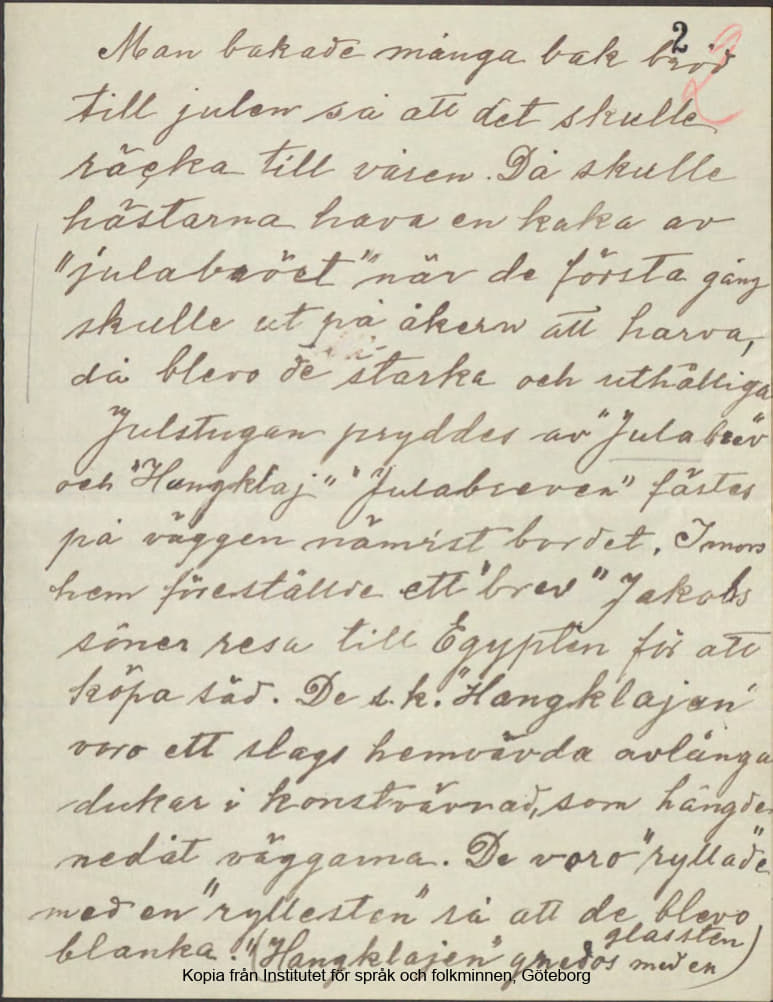 2
2
Man bakade många bak bröd
till julen så att det skulle
räcka till våren. Då skulle
hästarna hava en kaka av
"julabröet" när de första gång
skulle ut på åkern att harva,
då blevo de starka och uthålliga
Julstugan pryddes av "Julabrev
och "Hangklaj" "Julabreven" fästes
på väggen närmst bordet. I mors
hem föreställde ett "brev" Jakobs
söner resa till Egypten för att
köpa säd. De s.k. "Hangklajen"
voro ett slags hemvävda avlånga
dukar i konstvävnad, som hängde
nedåt väggarna. De voro "ryllade"
med en "ryllesten" så att de blevo
blanka. "(Hangklajen" gnedos med en
glassten)
Kopia från Institutet för språk och folkminnen, Göteborg